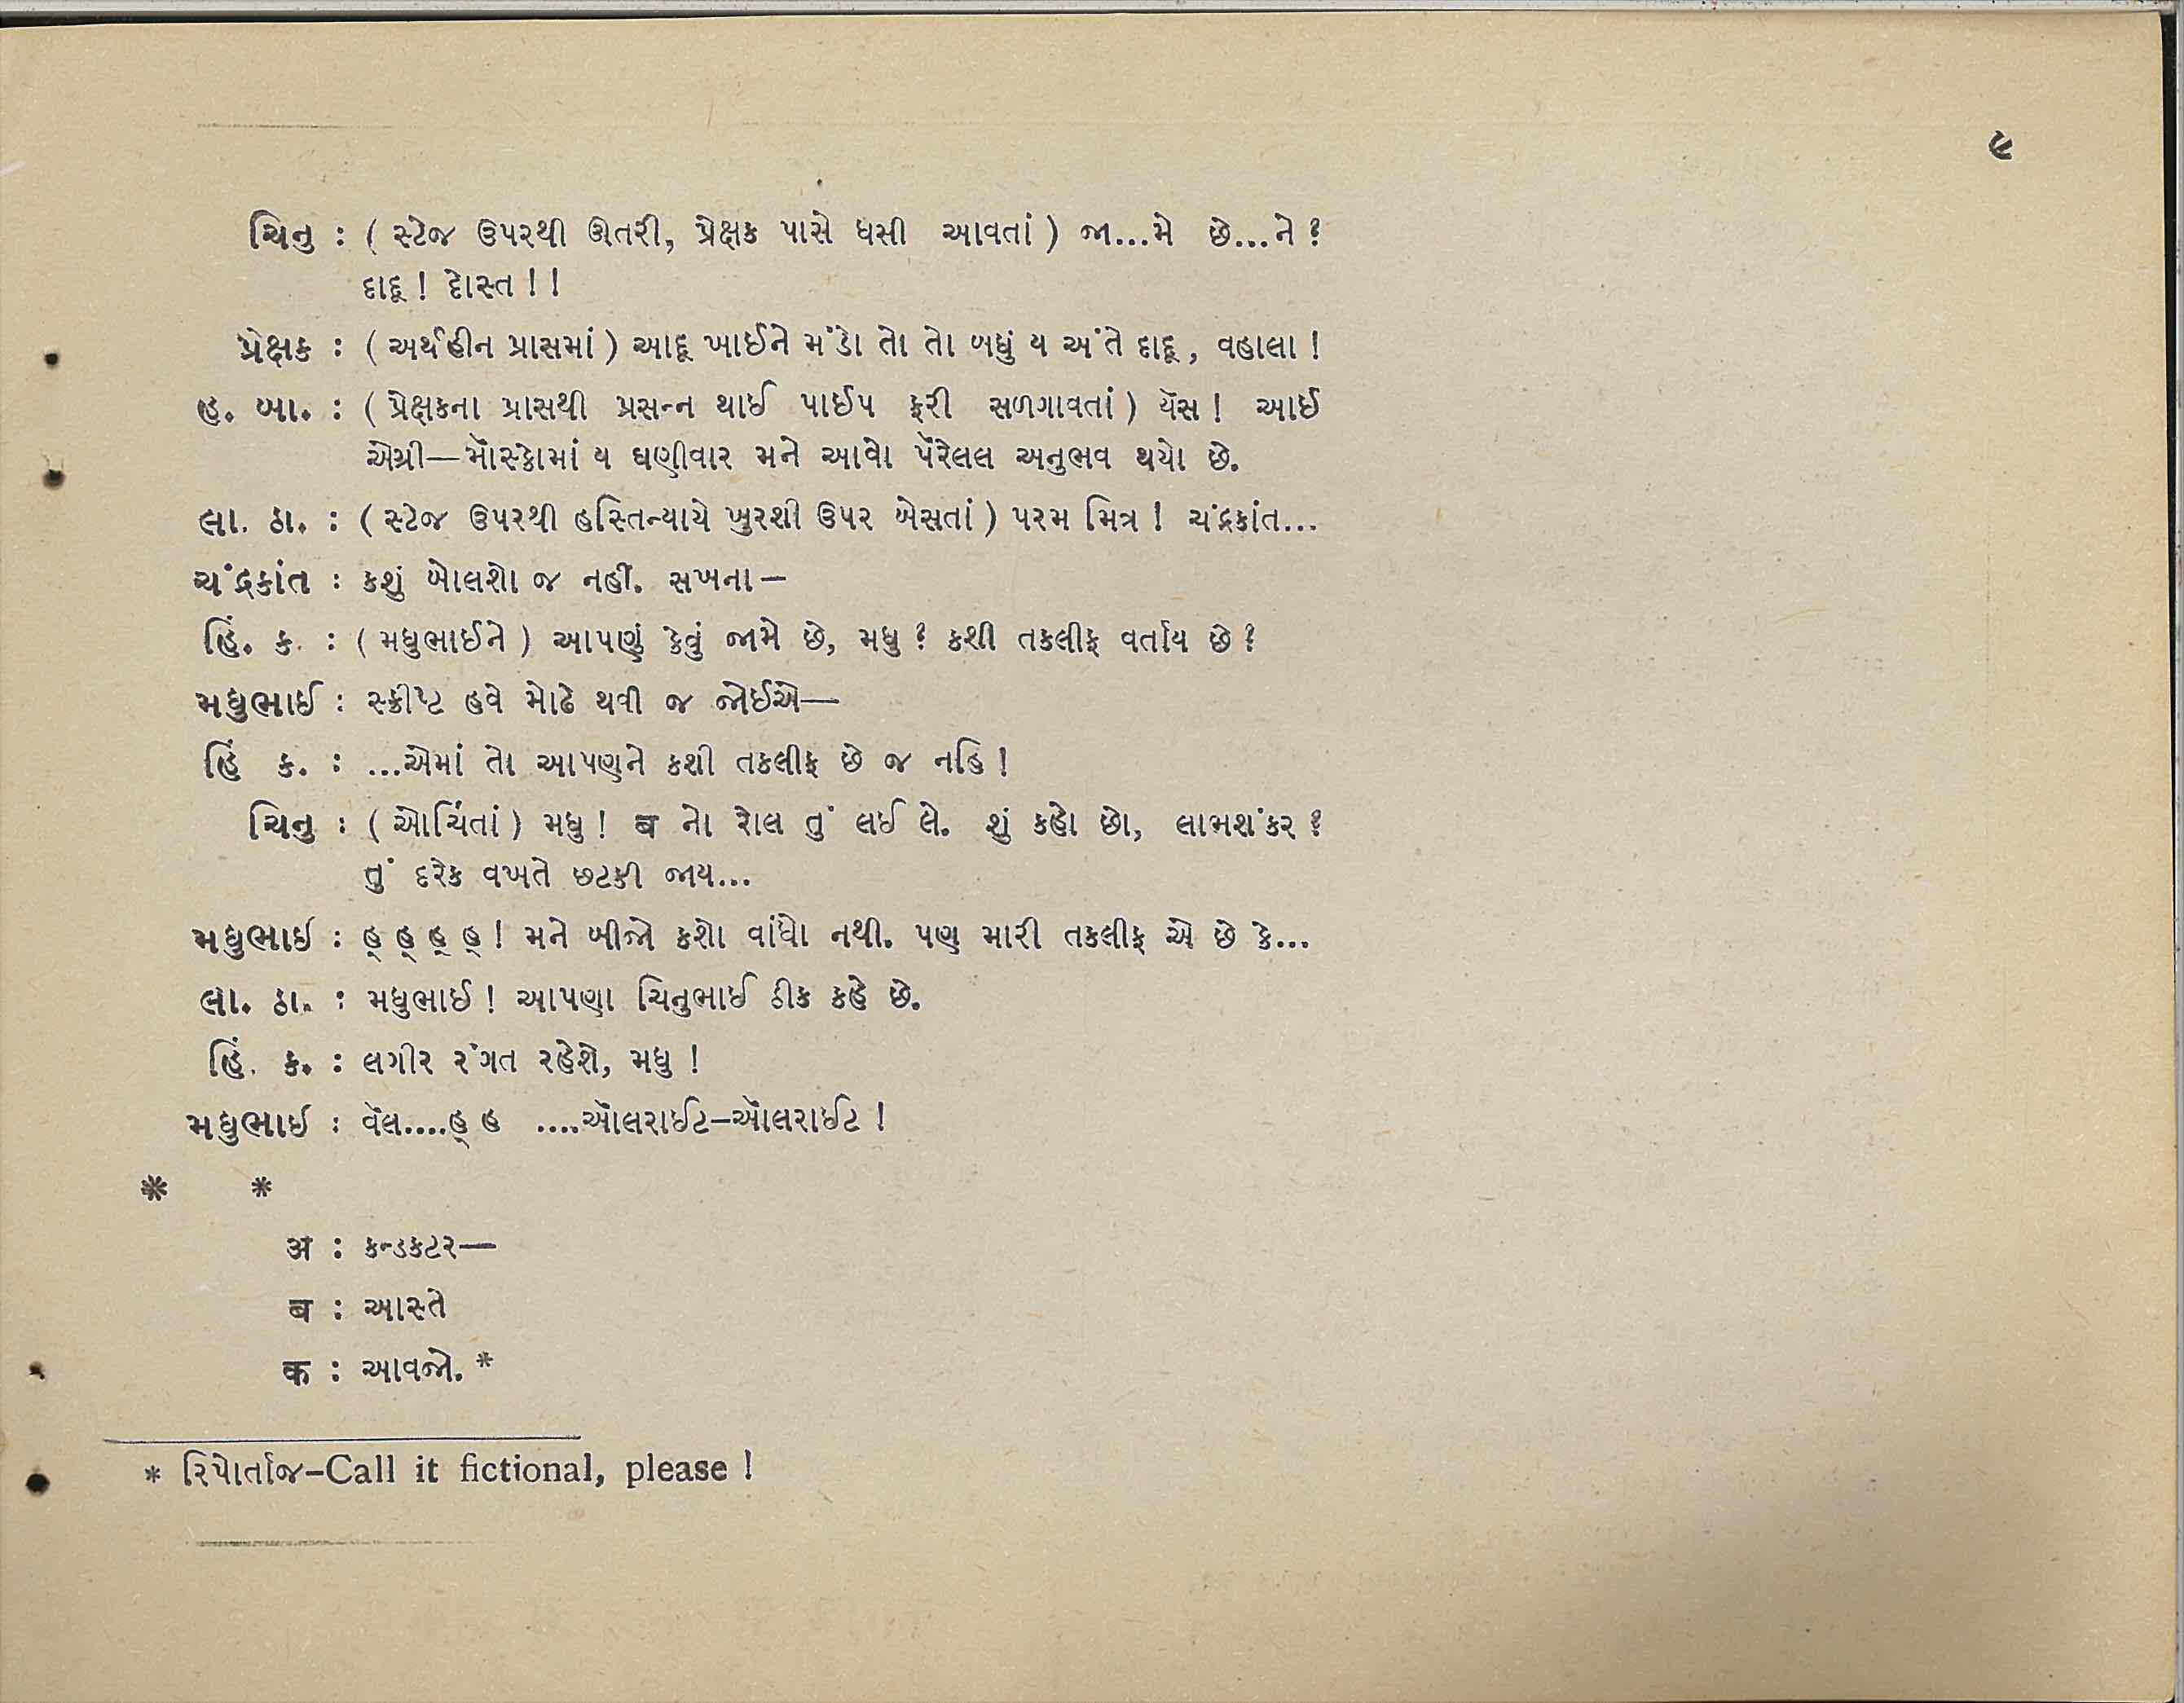 ૯
ચિનુ : ( સ્ટેજ ઉપરથી ઊતરી, પ્રેક્ષક પાસે ધસી આવતાં ) જા...મે છે...ને ?
દાદૂ ! દોસ્ત ! !
પ્રેક્ષક : ( અર્થહીન પ્રાસમાં ) આદૂ ખાઈને મંડો તો તો બધું ય અંતે દાદૂ, વહાલા !
હ. બા. : ( પ્રેક્ષકના પ્રાસથી પ્રસન્ન થાઈ પાઈપ ફરી સળગાવતાં ) યૅસ ! આઈ
એગ્રી—મૉસ્કોમાં ય ઘણીવાર મને આવો પૅરેલલ અનુભવ થયો છે.
લા. ઠા. : ( સ્ટેજ ઉપરથી હસ્તિન્યાયે ખુરશી ઉપર બેસતાં ) પરમ મિત્ર ! ચંદ્રકાંત...
ચંદ્રકાંત : કશું બોલશો જ નહીં. સખના—
હિં. ક. : ( મધુભાઈને ) આપણું કેવું જામે છે, મધુ ? કશી તકલીફ વર્તાય છે ?
મધુભાઈ : સ્ક્રીપ્ટ હવે મોઢે થવી જ જોઈએ—
હિં ક. : ...એમાં તો આપણને કશી તકલીફ છે જ નહિ !
ચિનુ : ( ઓચિંતાં ) મધુ ! ब નો રોલ તું લઈ લે. શું કહો છો, લાભશંકર ?
તું દરેક વખતે છટકી જાય...
મધુભાઈ : હ્ હ્ હ્ હ્ ! મને બીજો કશો વાંધો નથી. પણ મારી તકલીફ એ છે કે...
લા. ઠા. : મધુભાઈ ! આપણા ચિનુભાઈ ઠીક કહે છે.
હિં. ક. : લગીર રંગત રહેશે, મધુ !
મધુભાઈ : વૅલ....હ્ હ ....ઑલરાઈટ–ઑલરાઈટ !
* *
अ : કન્ડકટર—
ब : આસ્તે
क : આવજો. *
* રિપોર્તાજ–Call it fictional, please !